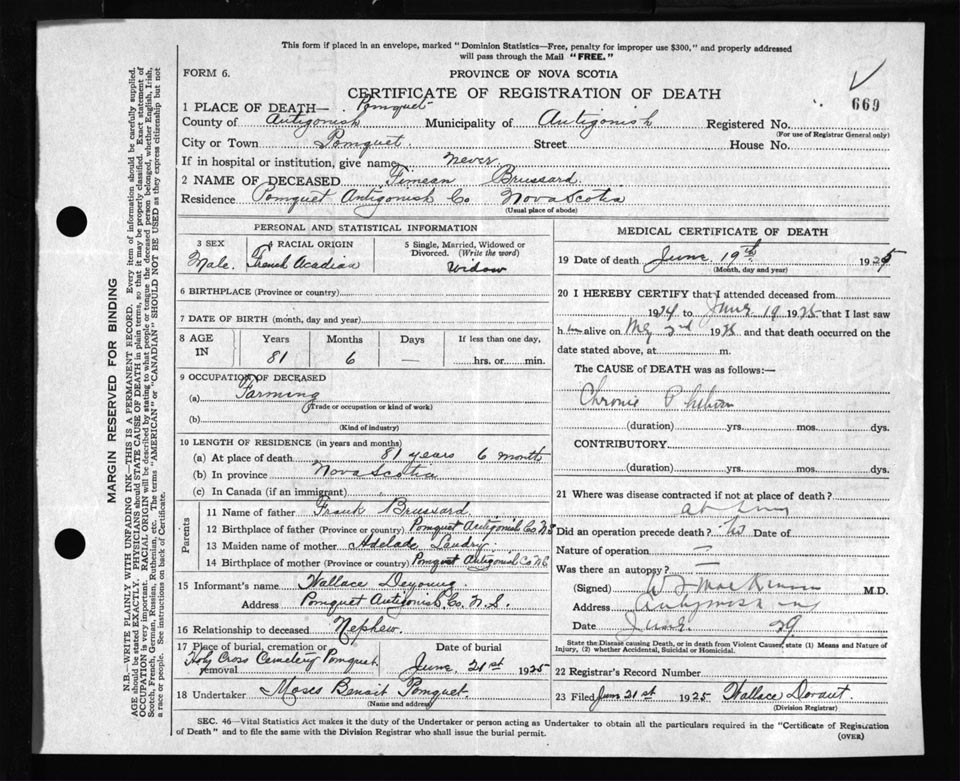 This form if placed in an envelope, marked "Dominion Statistics—Free, penalty for improper use $300," and properly addressed
will pass through the Mail "FREE."
FORM 6.
PROVINCE OF NOVA SCOTIA
CERTIFICATE OF REGISTRATION OF DEATH
669
1 PLACE OF DEATH— Pomquet
County of Antigonish Municipality of Antigonish Registered No.
(For use of Registrar General only)
City or Town Pomquet. Street House No.
If in hospital or institution, give name never
2 NAME OF DECEASED Simeon Brussard.
Residence Pomquet Antigonish Co Nova Scotia
(Usual place of abode)
PERSONAL AND STATISTICAL INFORMATION
3 SEX 4 RACIAL ORIGIN 5 Single, Married, Widowed or
Divorced. (Write the word)
Male. French Acadian Widow
6 BIRTHPLACE (Province or country)
7 DATE OF BIRTH (month, day and year)
8 AGE IN Years Months Days If less than one day,
81 6 — hrs. or min.
9 OCCUPATION OF DECEASED
(a) Farming
(Trade or occupation or kind of work)
(b)
(Kind of industry)
10 LENGTH OF RESIDENCE (in years and months)
(a) At place of death 81 years 6 month
(b) In province Nova Scotia
(c) In Canada (if an immigrant)
Parents
11 Name of father Frank Brussard
12 Birthplace of father (Province or country) Pomquet Antigonish Co N S
13 Maiden name of mother Adelade Landry
14 Birthplace of mother (Province or country) Pomquet Antigonish Co N S
15 Informant's name Wallace Deyoung
Address Pomquet Antigonish Co. N. S.
16 Relationship to deceased Nephew.
17 Place of burial, cremation or removal Date of burial
Holy Cross Cemetery Pomquet June 21st 1925
18 Undertaker Moses Benoit Pomquet
(Name and address)
MEDICAL CERTIFICATE OF DEATH
19 Date of death June 19th 1925
(Month, day and year)
20 I HEREBY CERTIFY that I attended deceased from
1924 to June 19 1925 that I last saw
h im alive on 1925 and that death occurred on the
date stated above, at m.
The CAUSE of DEATH was as follows:—
Chronic
(duration) yrs. mos. dys.
CONTRIBUTORY
(duration) yrs. mos. dys.
21 Where was disease contracted if not at place of death?
Did an operation precede death? No Date of
Nature of operation —
Was there an autopsy? —
(Signed) M.D.
Address
Date June 29
State the Disease causing Death, or in death from Violent Causes, state (1) Means and Nature of
Injury, (2) whether Accidental, Suicidal or Homicidal.
22 Registrar's Record Number
23 Filed June 21st 1925 Wallace Dorant
(Division Registrar)
SEC. 46—Vital Statistics Act makes it the duty of the Undertaker or person acting as Undertaker to obtain all the particulars required in the "Certificate of Registration
of Death" and to file the same with the Division Registrar who shall issue the burial permit.
(OVER)
MARGIN RESERVED FOR BINDING
N.B.—WRITE PLAINLY WITH UNFADING INK—THIS IS A PERMANENT RECORD. Every item of information should be carefully supplied.
AGE should be stated EXACTLY. PHYSICIANS should STATE CAUSE OF DEATH in plain terms, so that it may be properly classified. Exact statement of
OCCUPATION is very important. RACIAL ORIGIN will be described by stating to what people or tongue the deceased person belonged, whether English, Irish,
Scotch, French, German, Russian, Ruthenian, etc. The terms "AMERICAN" or "CANADIAN" SHOULD NOT BE USED as they express citizenship but not
a race or people. See instructions on back of Certificate.